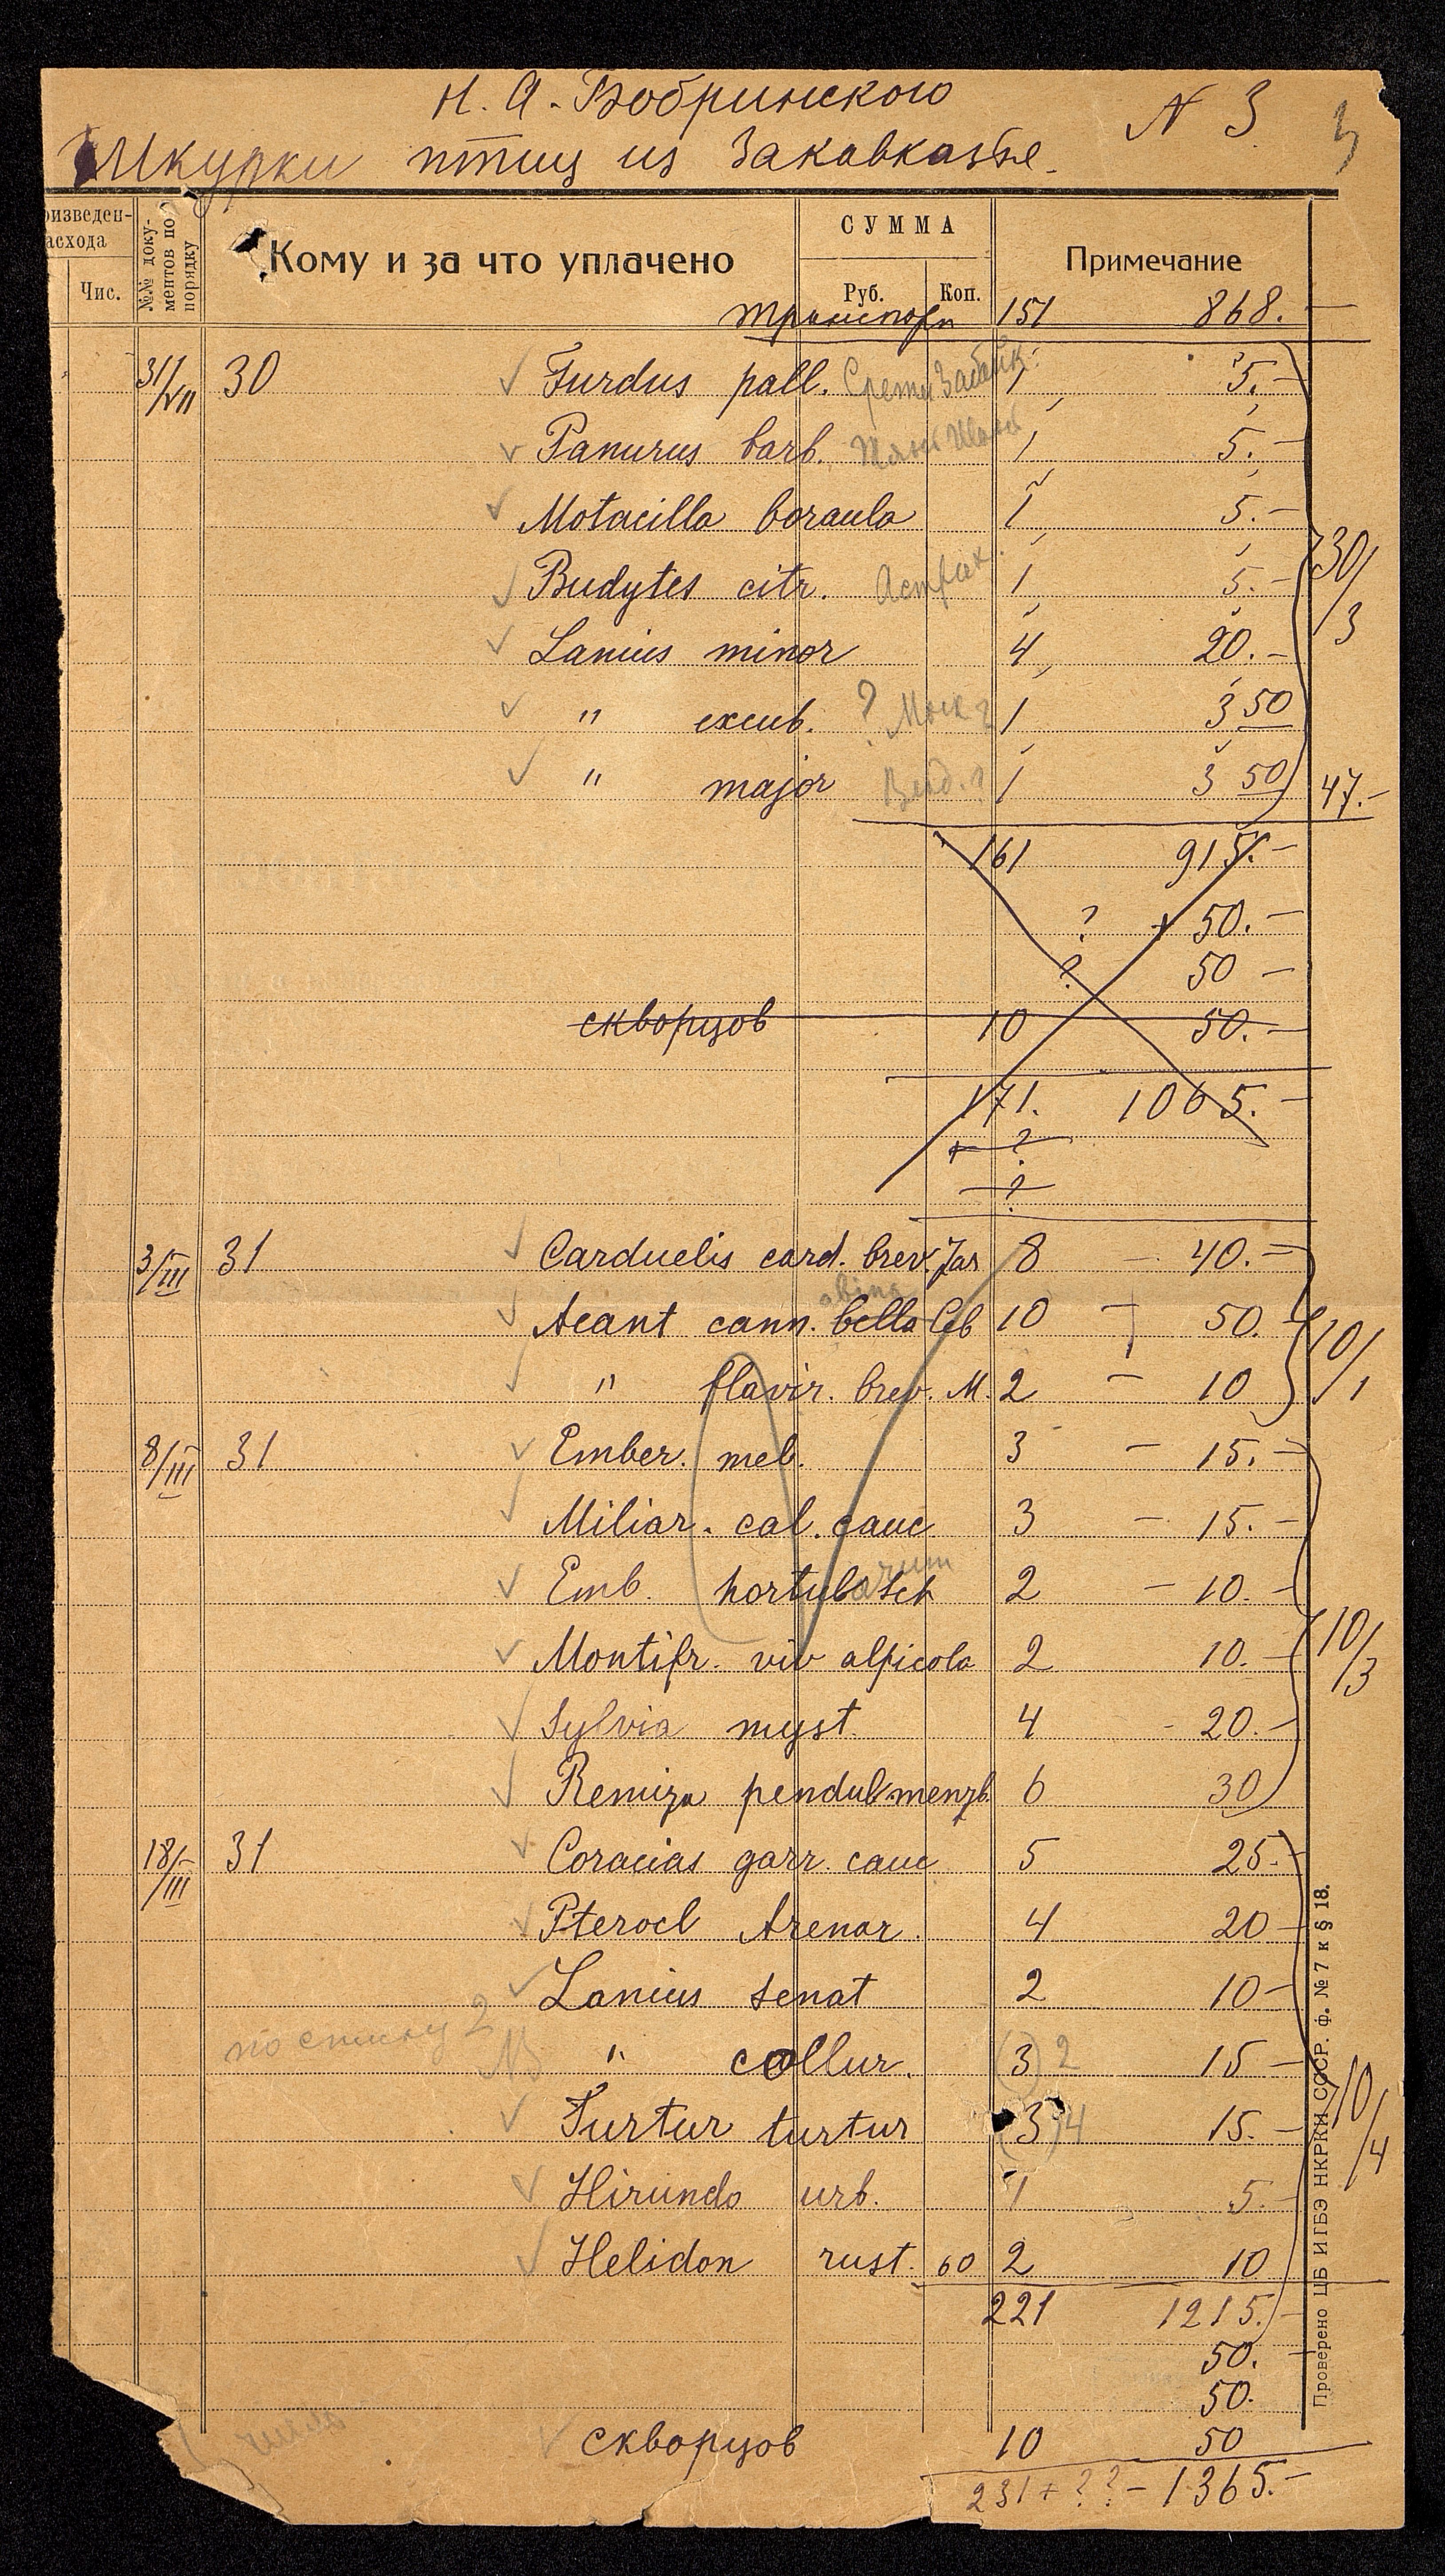 Н. А. Бобринского
N 3
Шкурки птиц из Закавказье.
оизведен-
асхода
Чис.
№№ доку-
ментов по
порядку
Кому и за что уплачено
СУММА
Руб.
Коп.
Примечание
транспорт 151 868.—
31/VII 30 Turdus pall. 1 5.—
Panurus barb. Тянь Шань 1 5.—
Motacilla boraula 1 5.—
Budytes citr. Астрах. 1 5.—
30/3
Lanius minor 4 20.—
" excub. ? Моск 1 3 50
" major 1 3 50 47.—
161 915.—
? + 50.—
? 50 —
скворцов 10 50.—
171. 1065.—
+ ?
?
3/III 31 Carduelis card. brev. Zar 8 — 40.—
Acant cann. bella Cab 10 — 50.—
10/1
" flavir. brev. M. 2 — 10
8/III 31 Ember. mel. 3 — 15.—
Miliar. cal. cauc 3 — 15.—
Emb. hortul 2 — 10.—
10/3
Montifr. niv alpicola 2 10.—
Sylvia myst. 4 - 20.—
Remiza pendul menzb. 6 30
18/III 31 Coracias garr. cauc 5 25.—
Pterocl Arenar. 4 20—
Lanius senat 2 10—
по списку 2
" collur. (3) 2 15—
10/4
Turtur turtur (3) 4 15.—
Hirundo urb. 1 5.—
Helidon rust. 60 2 10
221 1215.—
50.—
50.
скворцов 10 50
231 + ?? — 1365.—
Проверено ЦБ ИГБЭ НКРКИ СССР. ф. № 7 к § 18.